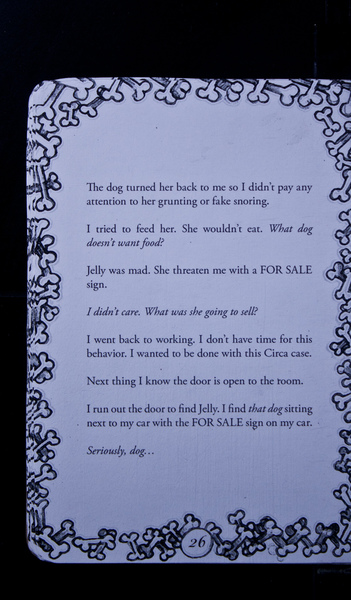 The dog turned her back to me so I didn't pay any
attention to her grunting or fake snoring.
I tried to feed her. She wouldn't eat. What dog
doesn't want food?
Jelly was mad. She threaten me with a FOR SALE
sign.
I didn't care. What was she going to sell?
I went back to working. I don't have time for this
behavior. I wanted to be done with this Circa case.
Next thing I know the door is open to the room.
I run out the door to find Jelly. I find that dog sitting
next to my car with the FOR SALE sign on my car.
Seriously, dog...
26